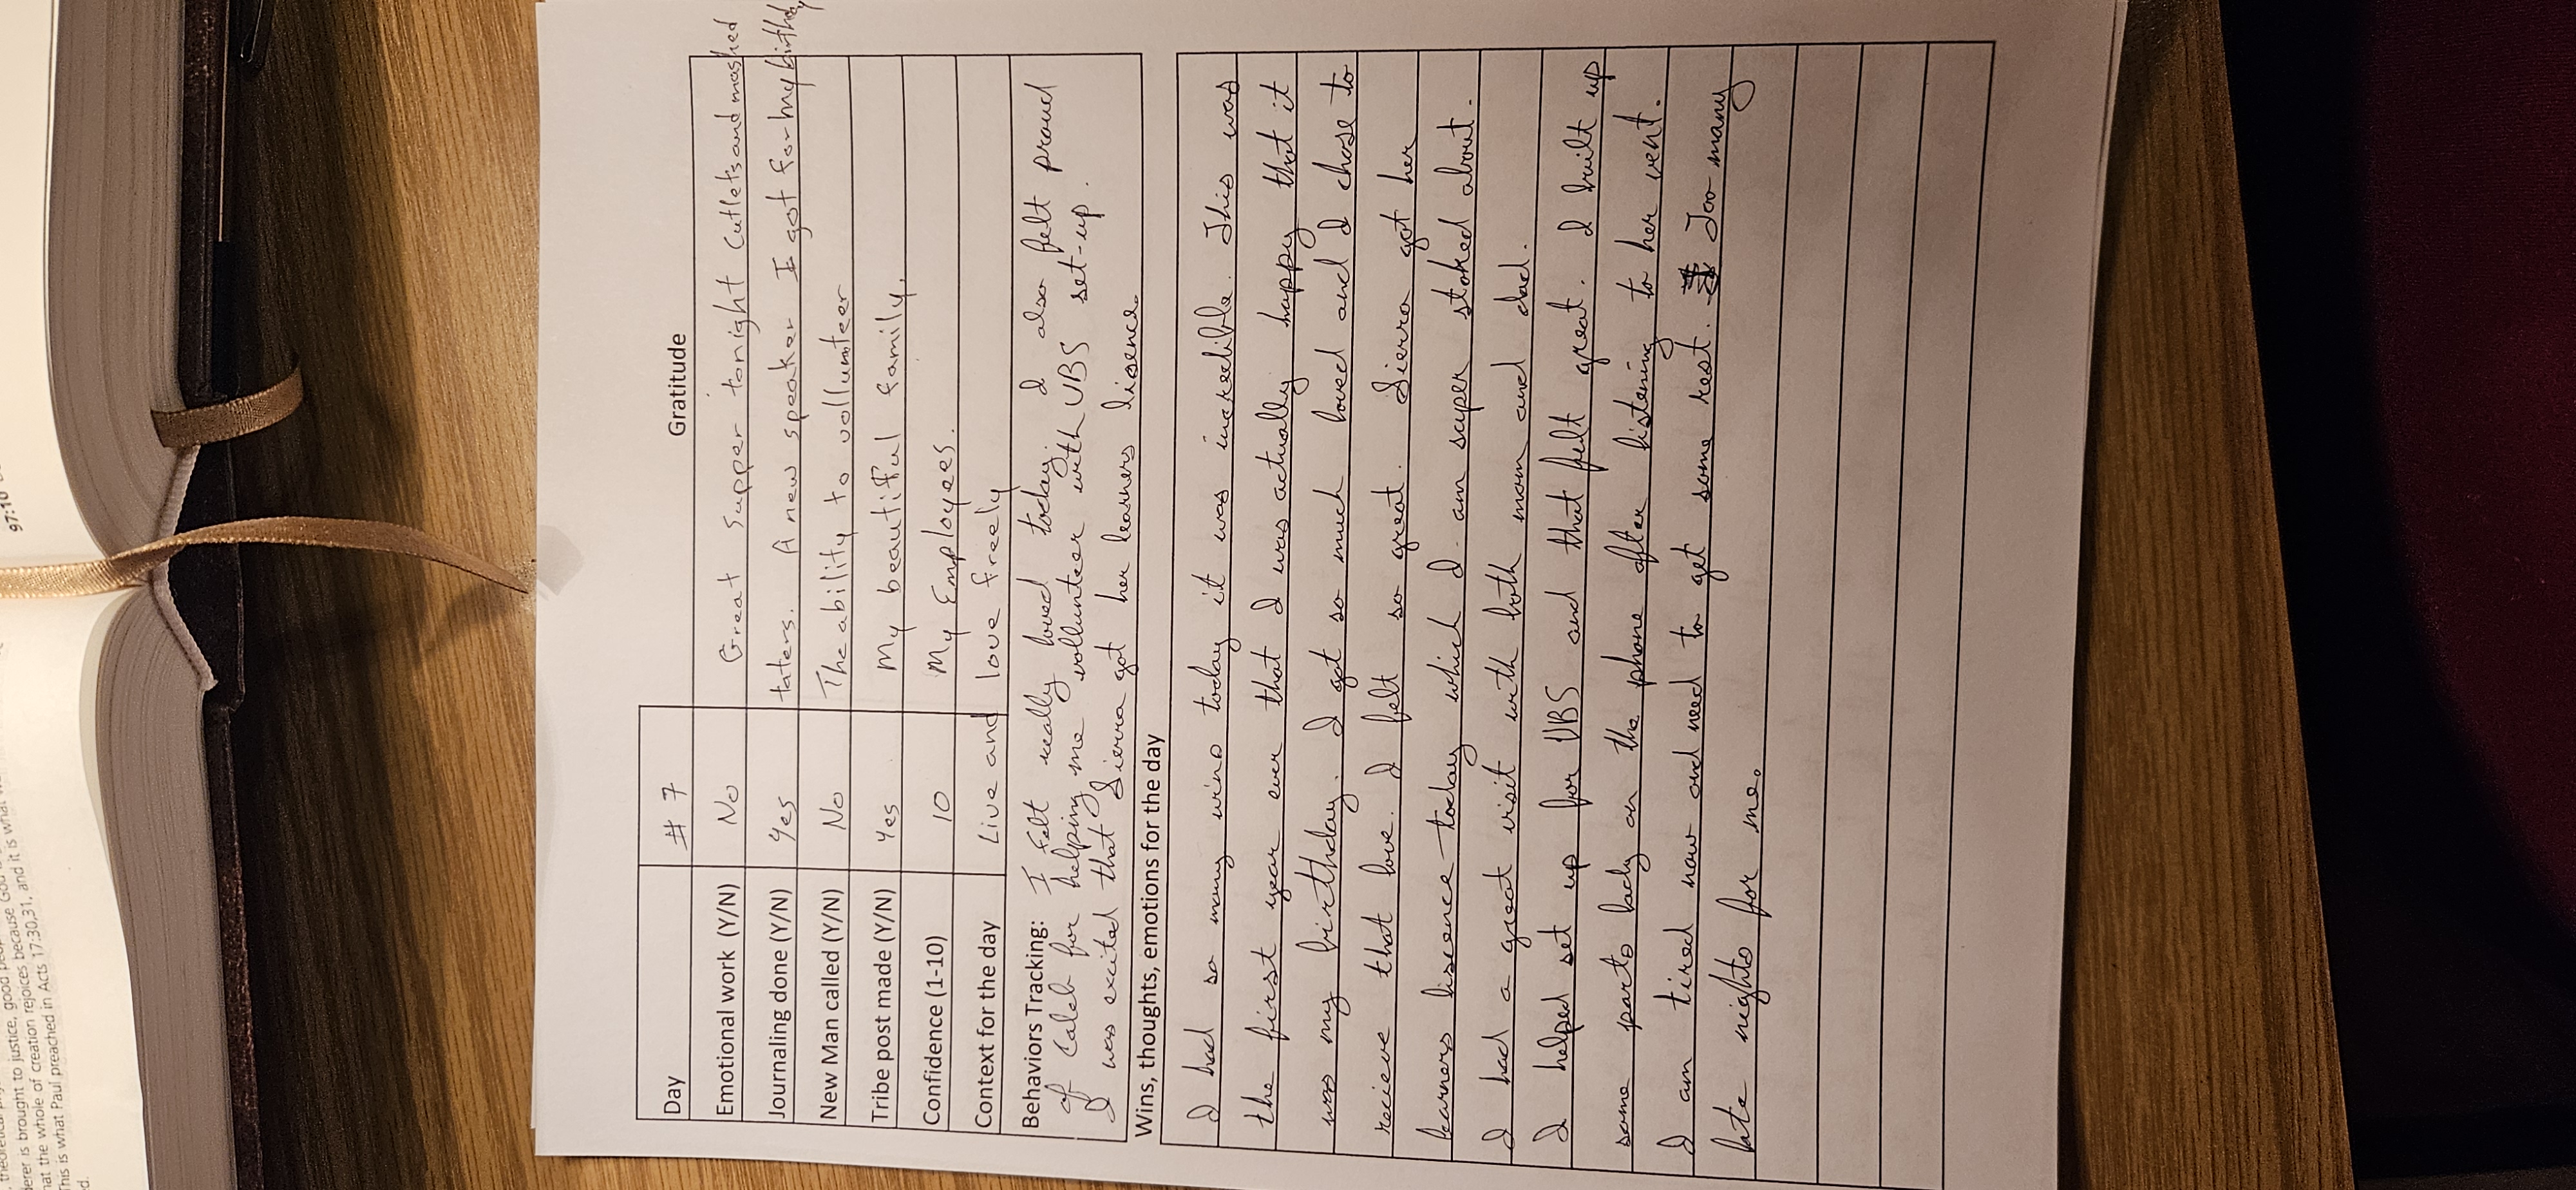 Day # 7 Gratitude
Emotional work (Y/N) No Great supper tonight Cutlets and mashed
Journaling done (Y/N) Yes taters. A new speaker I got for my birthday
New Man called (Y/N) No The ability to vollunteer
Tribe post made (Y/N) Yes My beautiful family.
Confidence (1-10) 10 My Employees.
Context for the day Live and love freely
Behaviors Tracking: I felt really loved today. I also felt proud
of Caleb for helping me vollunteer with VBS set-up.
I was excited that Sierra got her learners lisence.
Wins, thoughts, emotions for the day
I had so many wins today it was incredible. This was
the first year ever that I was actually happy that it
was my birthday. I got so much loved and I chose to
recieve that love. I felt so great. Sierra got her
learners lisence today which I am super stoked about.
I had a great visit with both mom and dad.
I helped set up for VBS and that felt great. I built up
some parts lady on the phone after listening to her vent.
I am tired now and need to get some rest. Too many
late nights for me.
97:10
derer is brought to justice, good
hat the whole of creation rejoices because God
This is what Paul preached in Acts 17:30,31, and it is what
d.